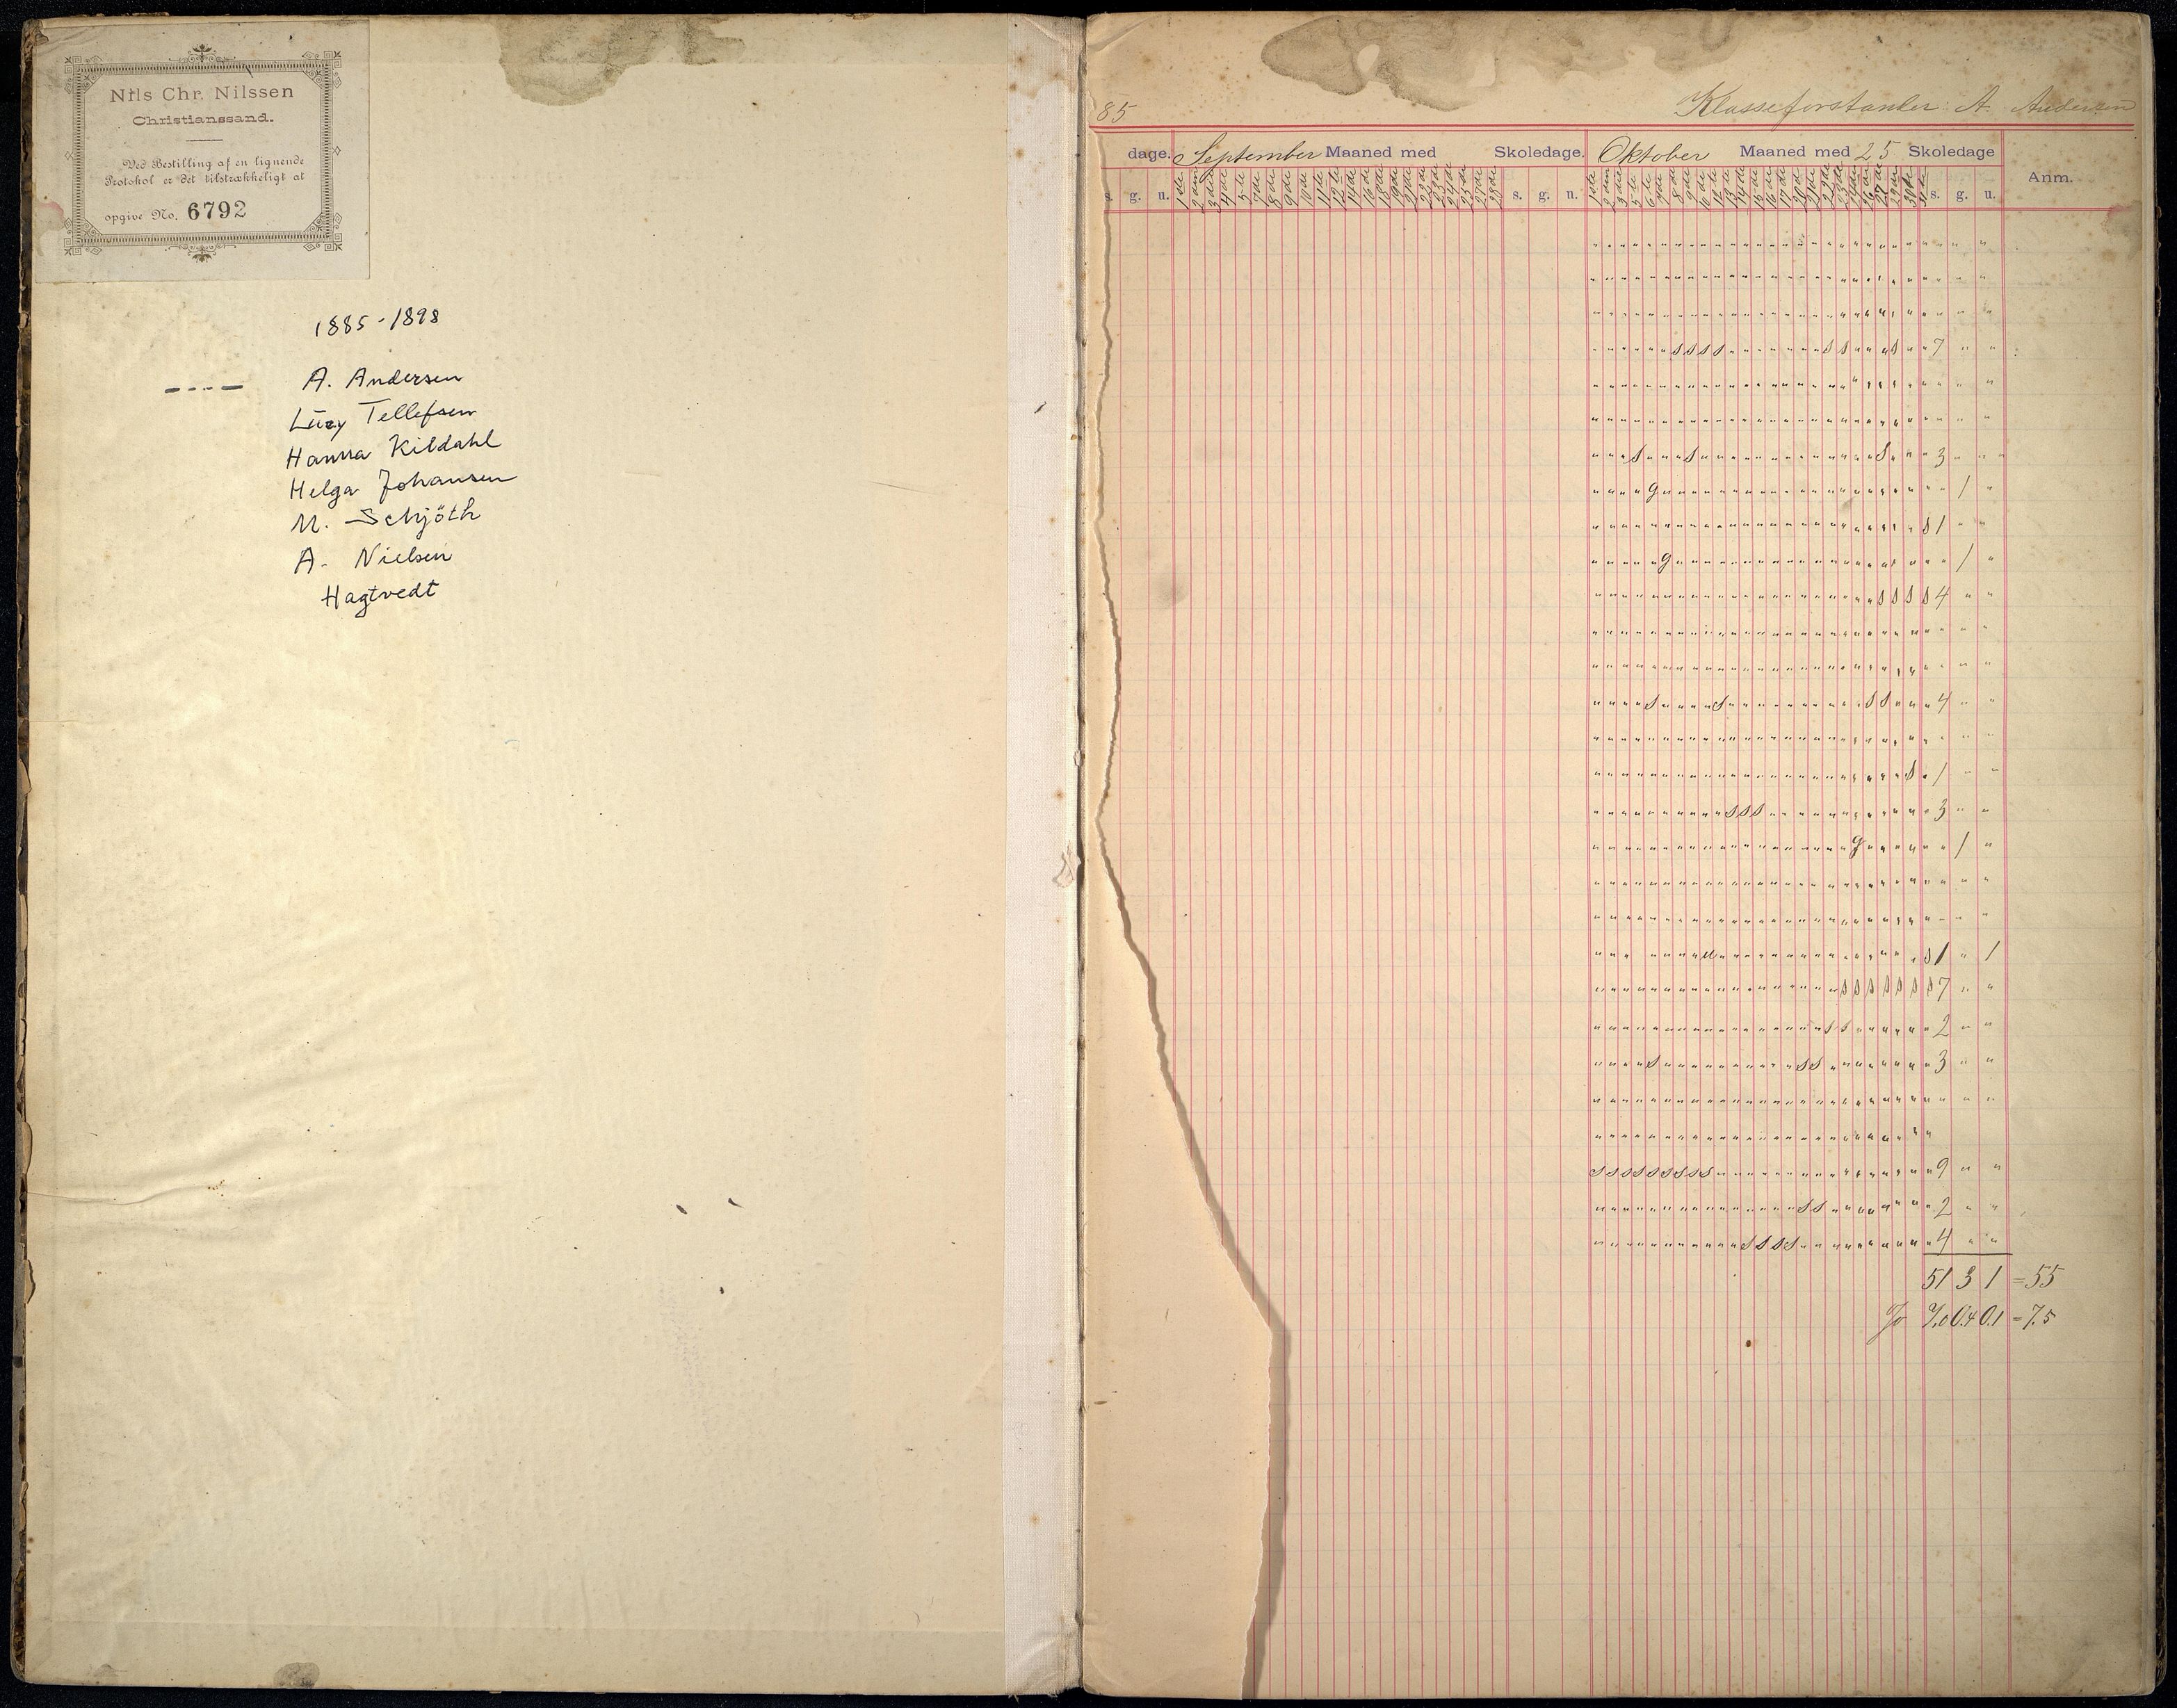 Nils Chr. Nilssen
Christianssand.
Ved Bestilling af en lignende
Protokol er det tilstrækkeligt at
opgive No. 6792
1885-1898
A. Andersen
Lucy Tellefsen
Hanna Kildahl
Helga Johansen
M. Schjöth
A. Nielsen
Hagtvedt
85
Klasseforstander: A. Andersen
dage. September Maaned med Skoledage. Oktober Maaned med 25 Skoledage Anm.
s. g. u. s. g. u. s. g. u.
s s s s s s s 7 " "
s s s 3 " "
g " 1 "
s 1 " "
g " 1 "
s s s s 4 " "
s s s s 4 " "
s 1 " "
s s s 3 " "
g " 1 "
u s 1 " 1
s s s s s s s 7 " "
s s 2 " "
s s s 3 " "
s s s s s s s s s 9 " "
s s 2 " "
s s s s 4 " "
51 3 1 = 55
% 7.0 0.4 0.1 = 7.5